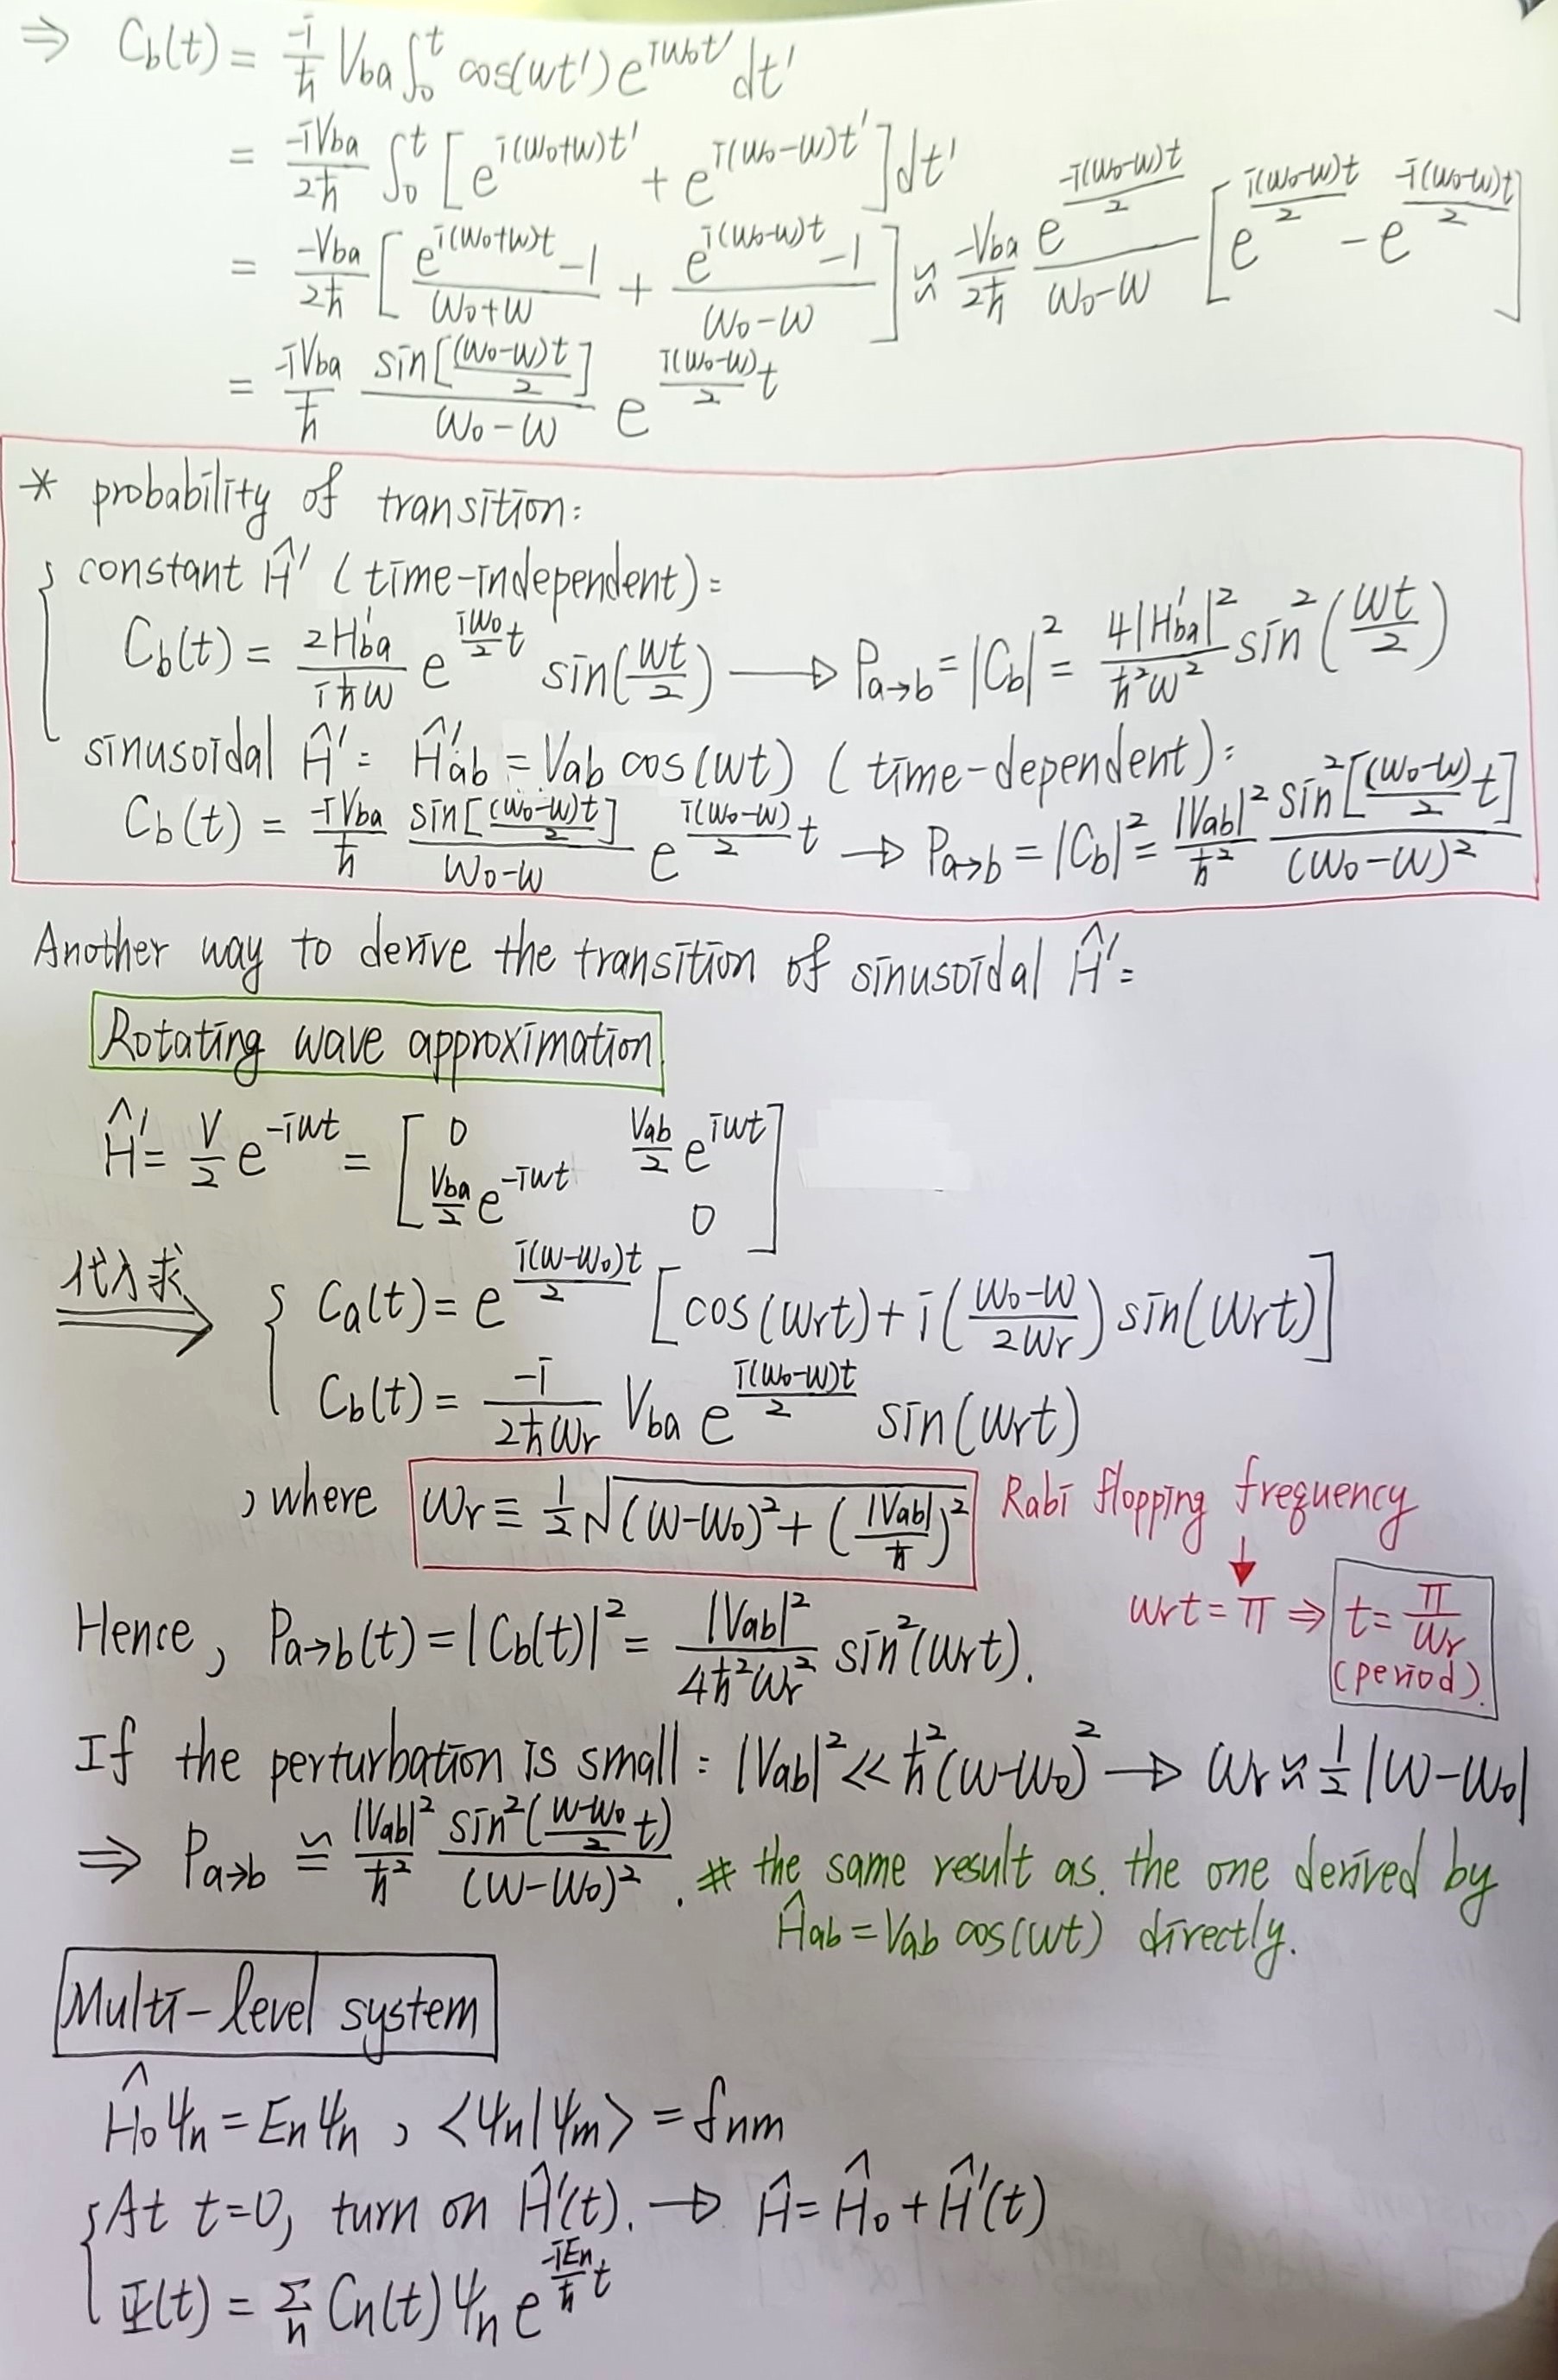 ⇒ C_b(t) = \frac{-i}{ħ} V_{ba} ∫_0^t cos(ωt') e^{iω_0t'} dt'
= \frac{-iV_{ba}}{2ħ} ∫_0^t [e^{i(ω_0+ω)t'} + e^{i(ω_0-ω)t'}] dt'
= \frac{-V_{ba}}{2ħ} [\frac{e^{i(ω_0+ω)t} - 1}{ω_0+ω} + \frac{e^{i(ω_0-ω)t} - 1}{ω_0-ω}] ≈ \frac{-V_{ba}}{2ħ} \frac{e^{\frac{-i(ω_0-ω)t}{2}}}{ω_0-ω} [e^{\frac{i(ω_0-ω)t}{2}} - e^{\frac{-i(ω_0-ω)t}{2}}]
= \frac{-iV_{ba}}{ħ} \frac{sin[\frac{(ω_0-ω)t}{2}]}{ω_0-ω} e^{\frac{i(ω_0-ω)}{2}t}
* probability of transition:
{ constant Ĥ' (time-independent):
C_b(t) = \frac{2H'_{ba}}{iħω} e^{\frac{iω_0}{2}t} sin(\frac{ωt}{2}) → P_{a→b} = |C_b|^2 = \frac{4|H'_{ba}|^2}{ħ^2ω^2} sin^2(\frac{ωt}{2})
sinusoidal Ĥ': Ĥ'_{ab} = V_{ab} cos(ωt) (time-dependent):
C_b(t) = \frac{-iV_{ba}}{ħ} \frac{sin[\frac{(ω_0-ω)t}{2}]}{ω_0-ω} e^{\frac{i(ω_0-ω)}{2}t} → P_{a→b} = |C_b|^2 = \frac{|V_{ab}|^2}{ħ^2} \frac{sin^2[\frac{(ω_0-ω)}{2}t]}{(ω_0-ω)^2}
Another way to derive the transition of sinusoidal Ĥ':
Rotating wave approximation
Ĥ' = \frac{V}{2} e^{-iωt} = [0 \frac{V_{ab}}{2} e^{iωt}
\frac{V_{ba}}{2} e^{-iωt} 0]
代入求 ⇒ { C_a(t) = e^{\frac{i(ω-ω_0)t}{2}} [cos(ω_rt) + i(\frac{ω_0-ω}{2ω_r}) sin(ω_rt)]
C_b(t) = \frac{-i}{2ħω_r} V_{ba} e^{\frac{i(ω_0-ω)t}{2}} sin(ω_rt)
, where ω_r ≡ \frac{1}{2} \sqrt{(ω-ω_0)^2 + (\frac{|V_{ab}|}{ħ})^2} Rabi flopping frequency
ω_rt = π ⇒ t = \frac{π}{ω_r} (period).
Hence, P_{a→b}(t) = |C_b(t)|^2 = \frac{|V_{ab}|^2}{4ħ^2ω_r^2} sin^2(ω_rt).
If the perturbation is small: |V_{ab}|^2 << ħ^2(ω-ω_0)^2 → ω_r ≈ \frac{1}{2}|ω-ω_0|
⇒ P_{a→b} ≅ \frac{|V_{ab}|^2}{ħ^2} \frac{sin^2(\frac{ω-ω_0}{2}t)}{(ω-ω_0)^2}. # the same result as. the one derived by
Ĥ_{ab} = V_{ab} cos(ωt) directly.
Multi-level system
Ĥ_0ψ_n = E_nψ_n , <ψ_n|ψ_m> = δ_{nm}
{ At t=0, turn on Ĥ'(t). → Ĥ = Ĥ_0 + Ĥ'(t)
Ψ(t) = Σ_n C_n(t) ψ_n e^{\frac{-iE_n}{ħ}t}